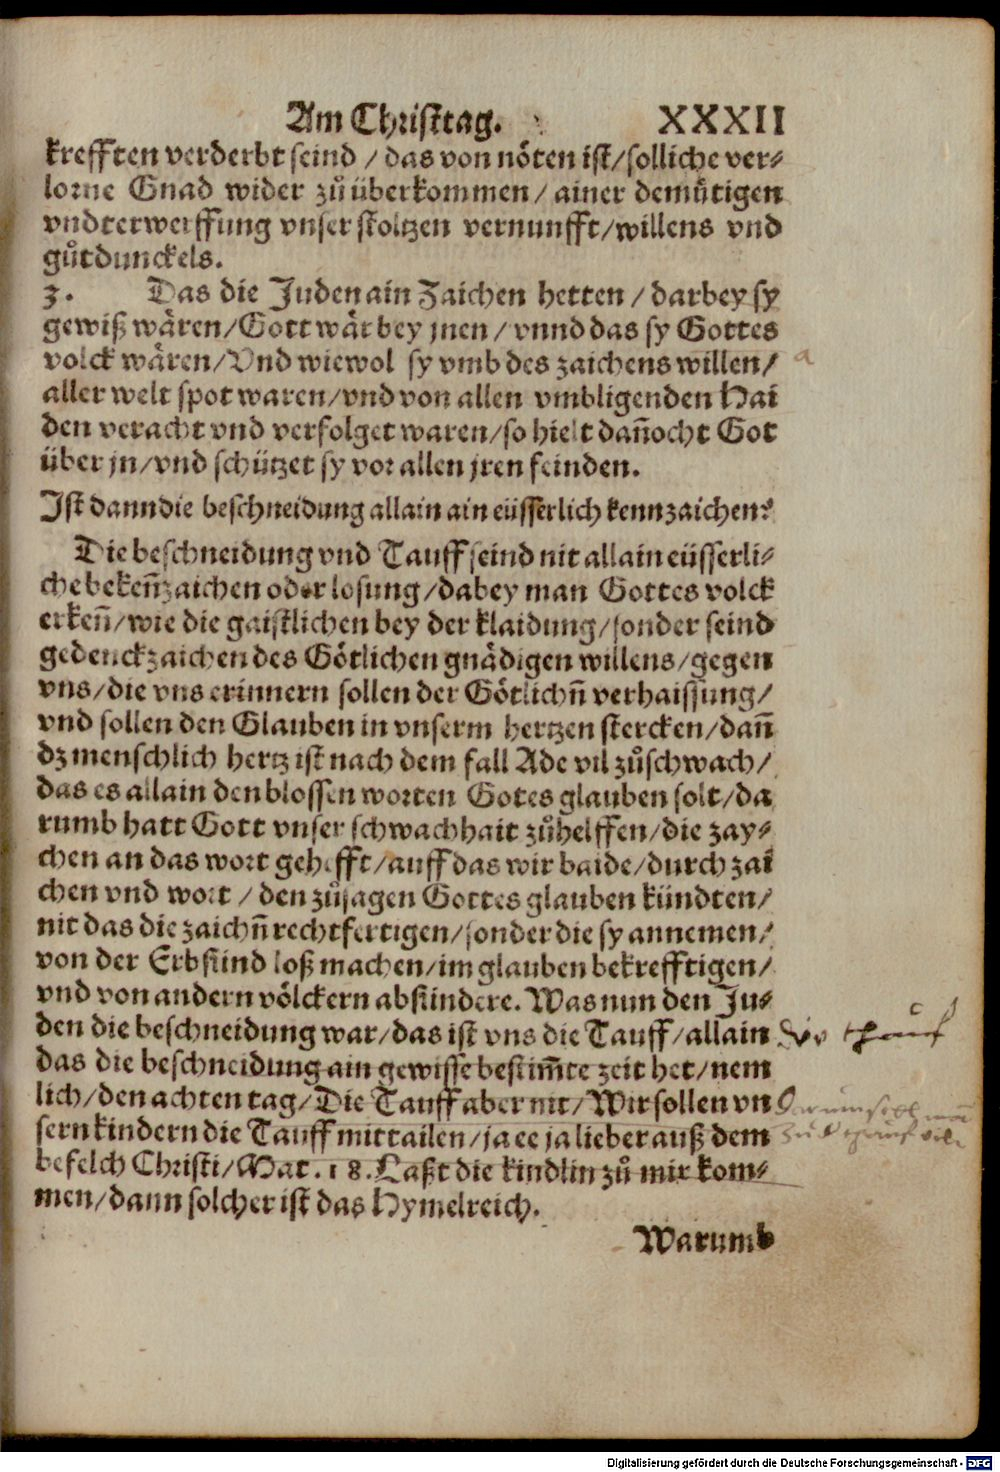 Am Christtag. XXXII
krefften verderbt seind / das von nöten ist/solliche ver⸗
lorne Gnad wider zů überkommen/ ainer demütigen
vndterwerffung vnser stoltzen vernunfft/willens vnd
gůtdunckels.
3. Das die Juden ain Zaichen hetten / darbey sy
gewiß wären/Gott wär bey jnen / vnnd das sy Gottes
volck wären/Vnd wiewol sy vmb des zaichens willen/
aller welt spot waren/vnd von allen vmbligenden Hai
den veracht vnd verfolget waren/so hielt dañocht Got
über jn/vnd schützet sy vor allen jren feinden.
Ist dann die beschneidung allain ain eüsserlich kennzaichen?
Die beschneidung vnd Tauff seind nit allain eüsserli⸗
che bekeñzaichen oder losung/dabey man Gottes volck
erkeñ/wie die gaistlichen bey der klaidung/sonder seind
gedenckzaichen des Götlichen gnädigen willens/gegen
vns/die vns erinnern sollen der Götlichñ verhaissung/
vnd sollen den Glauben in vnserm hertzen stercken/dañ
dz menschlich hertz ist nach dem fall Ade vil zůschwach/
das es allain den blossen worten Gotes glauben solt/da
rumb hatt Gott vnser schwachhait zůhelffen/die zay⸗
chen an das wort gehefft/auff das wir baide/durch zai
chen vnd wort / den zůsagen Gottes glauben kündten/
nit das die zaichñ rechtfertigen/sonder die sy annemen/
von der Erbsünd loß machen/im glauben bekrefftigen/
vnd von andern völckern absündere. Was nun den Ju⸗
den die beschneidung war/das ist vns die Tauff/allain
das die beschneidung ain gewisse bestim̃te zeit het/nem
lich/den achten tag/Die Tauff aber nit/Wir sollen vn
sern kindern die Tauff mittailen/ja ee ja lieber auß dem
befelch Christi/Mat. 18. Laßt die kindlin zů mir kom⸗
men/dann solcher ist das Hymelreich.
Warumb
a
Die thauf
Digitalisierung gefördert durch die Deutsche Forschungsgemeinschaft - DFG